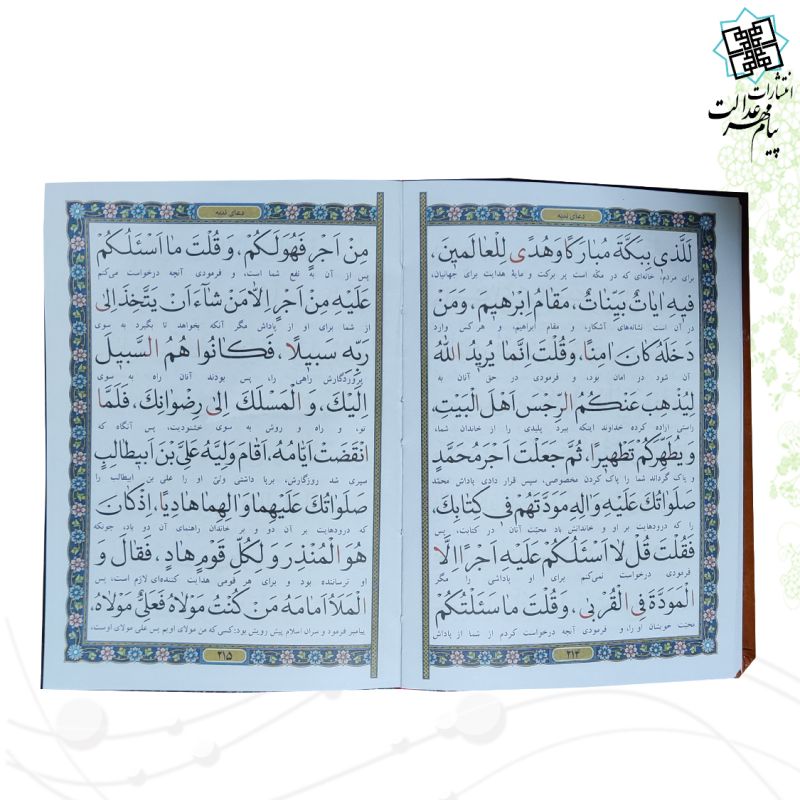 انتشارات
پیام مهر عدالت
دعای ندبه
لَلَّذی بِبَکَّةَ مُبارَکًا وَ هُدًی لِلْعالَمینَ،
برای مردم؛ خانه‌ای که در مکّه است پر برکت و مایۀ هدایت برای جهانیان،
فیهِ ایاتٌ بَیِّناتٌ، مَقامُ اِبْرهیمَ، وَمَنْ
در آن است نشانه‌های آشکار، و مقام ابراهیم، و هر کس وارد
دَخَلَهُ کانَ امِنًا، وَ قُلْتَ اِنَّما یُریدُ اللهُ
آن شود در امان بود، و فرمودی در حق آنان به
لِیُذْهِبَ عَنْکُمُ الرِّجْسَ اَهْلَ الْبَیْتِ،
راستی اراده کرده خداوند اینکه ببرد پلیدی را از خاندان شما،
وَ یُطَهِّرَکُمْ تَطْهیرًا، ثُمَّ جَعَلْتَ اَجْرَ مُحَمَّدٍ
و پاک گرداند شما را پاک کردن مخصوصی، سپس قرار دادی پاداش محمّد
صَلَواتُکَ عَلَیْهِ وَالِهِ مَوَدَّتَهُمْ فی کِتابِکَ،
را که درودهایت بر او و خاندانش باد محبّت آنان در کتابت، پس
فَقُلْتَ قُلْ لا اَسْئَلُکُمْ عَلَیْهِ اَجْرًا اِلَّا
فرمودی درخواست نمی‌کنم برای او پاداشی را مگر
الْمَوَدَّةَ فِی الْقُرْبی، وَ قُلْتَ ما سَئَلْتُکُمْ
محبّت خویشان او را، و فرمودی آنچه درخواست کردم از شما از پاداش
۲۱۴
دعای ندبه
مِنْ اَجْرٍ فَهُوَ لَکُمْ، وَ قُلْتَ ما اَسْئَلُکُمْ
پس از آن به نفع شما است، و فرمودی آنچه درخواست می‌کنم
عَلَیْهِ مِنْ اَجْرٍ اِلَّا مَنْ شآءَ اَنْ یَتَّخِذَ اِلی
از شما برای او از پاداش مگر آنکه بخواهد تا بگیرد به سوی
رَبِّهِ سَبیلًا، فَکانُوا هُمُ السَّبیلَ
پروردگارش راهی را، پس بودند آنان راه به سوی
اِلَیْکَ، وَ الْمَسْلَکَ اِلی رِضْوانِکَ، فَلَمَّا
تو، و راه و روش به سوی خشنودیت، پس آنگاه که
انْقَضَتْ اَیّامُهُ، اَقامَ وَلِیَّهُ عَلِیَّ بْنَ اَبیطالِبٍ
سپری شد روزگارش، برپا داشتی ولیّ او را علی بن ابیطالب را
صَلَواتُکَ عَلَیْهِما وَ الِهِما هادِیًا، اِذْ کانَ
که درودهایت بر آن دو و بر خاندان راهنمای آن دو باد، چونکه
هُوَ الْمُنْذِرَ وَ لِکُلِّ قَوْمٍ هادٍ، فَقالَ وَ
او ترساننده بود و برای هر قومی هدایت کننده‌ای لازم است، پس
الْمَلَأُ اَمامَهُ مَنْ کُنْتُ مَوْلاهُ فَعَلِیٌّ مَوْلاهُ،
پیامبر فرمود و سران اسلام پیش رویش بود: کسی که من مولای اویم پس علی مولای اوست،
۲۱۵